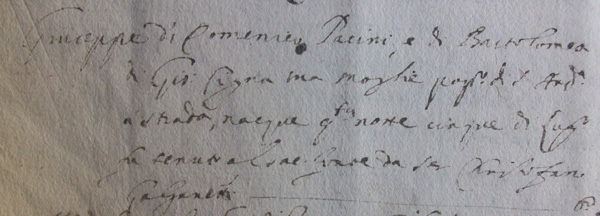 Giuseppe di Domenico Pacini, e di Bartolomea
di Gio: sua moglie pop.o di S. And.a
a Strada, nacque q.sta notte cinque di Lug.o
fu tenuto al Sac. Fonte da ser Cristofan
Galganetti